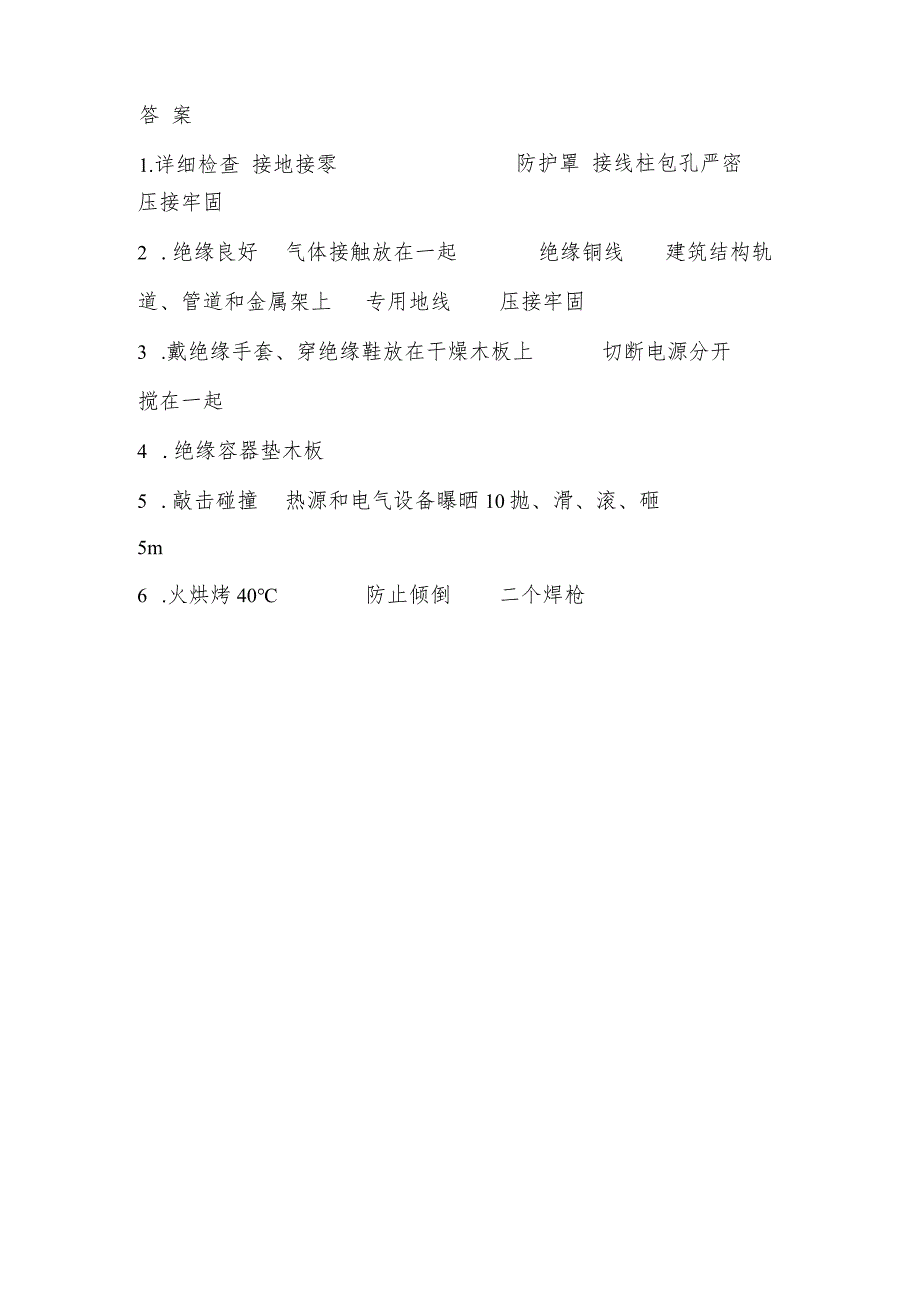 答 案
1.详细检查 接地接零 防护罩 接线柱包孔严密
压接牢固
2 . 绝缘良好 气体接触放在一起 绝缘铜线 建筑结构轨
道、管道和金属架上 专用地线 压接牢固
3 .戴绝缘手套、穿绝缘鞋放在干燥木板上 切断电源分开
搅在一起
4 . 绝缘容器垫木板
5 . 敲击碰撞 热源和电气设备曝晒 10 抛、滑、滚、砸
5m
6 .火烘烤 40℃ 防止倾倒 二个焊枪